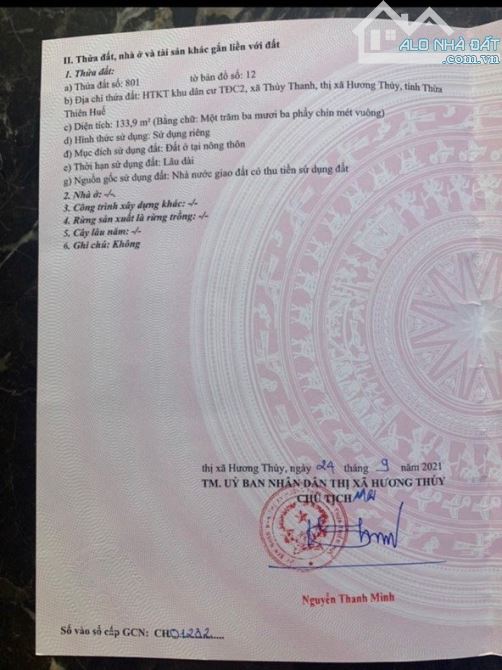 ALO NHÀ ĐẤT
II. Thửa đất, nhà ở và tài sản khác gắn liền với đất
1. Thửa đất:
a) Thửa đất số: 801 tờ bản đồ số: 12
b) Địa chỉ thửa đất: HTKT khu dân cư TĐC2, xã Thủy Thanh, thị xã Hương Thủy, tỉnh Thừa
Thiên Huế
c) Diện tích: 133,9 m² (Bằng chữ: Một trăm ba mươi ba phẩy chín mét vuông)
d) Hình thức sử dụng: Sử dụng riêng
đ) Mục đích sử dụng đất: Đất ở tại nông thôn
e) Thời hạn sử dụng đất: Lâu dài
g) Nguồn gốc sử dụng đất: Nhà nước giao đất có thu tiền sử dụng đất
2. Nhà ở: -/-
3. Công trình xây dựng khác: -/-
4. Rừng sản xuất là rừng trồng: -/-
5. Cây lâu năm: -/-
6. Ghi chú: Không
thị xã Hương Thủy, ngày 24 tháng 9 năm 2021
TM. UỶ BAN NHÂN DÂN THỊ XÃ HƯƠNG THỦY
CHỦ TỊCH
Nguyễn Thanh Minh
Số vào sổ cấp GCN: CH01232.....